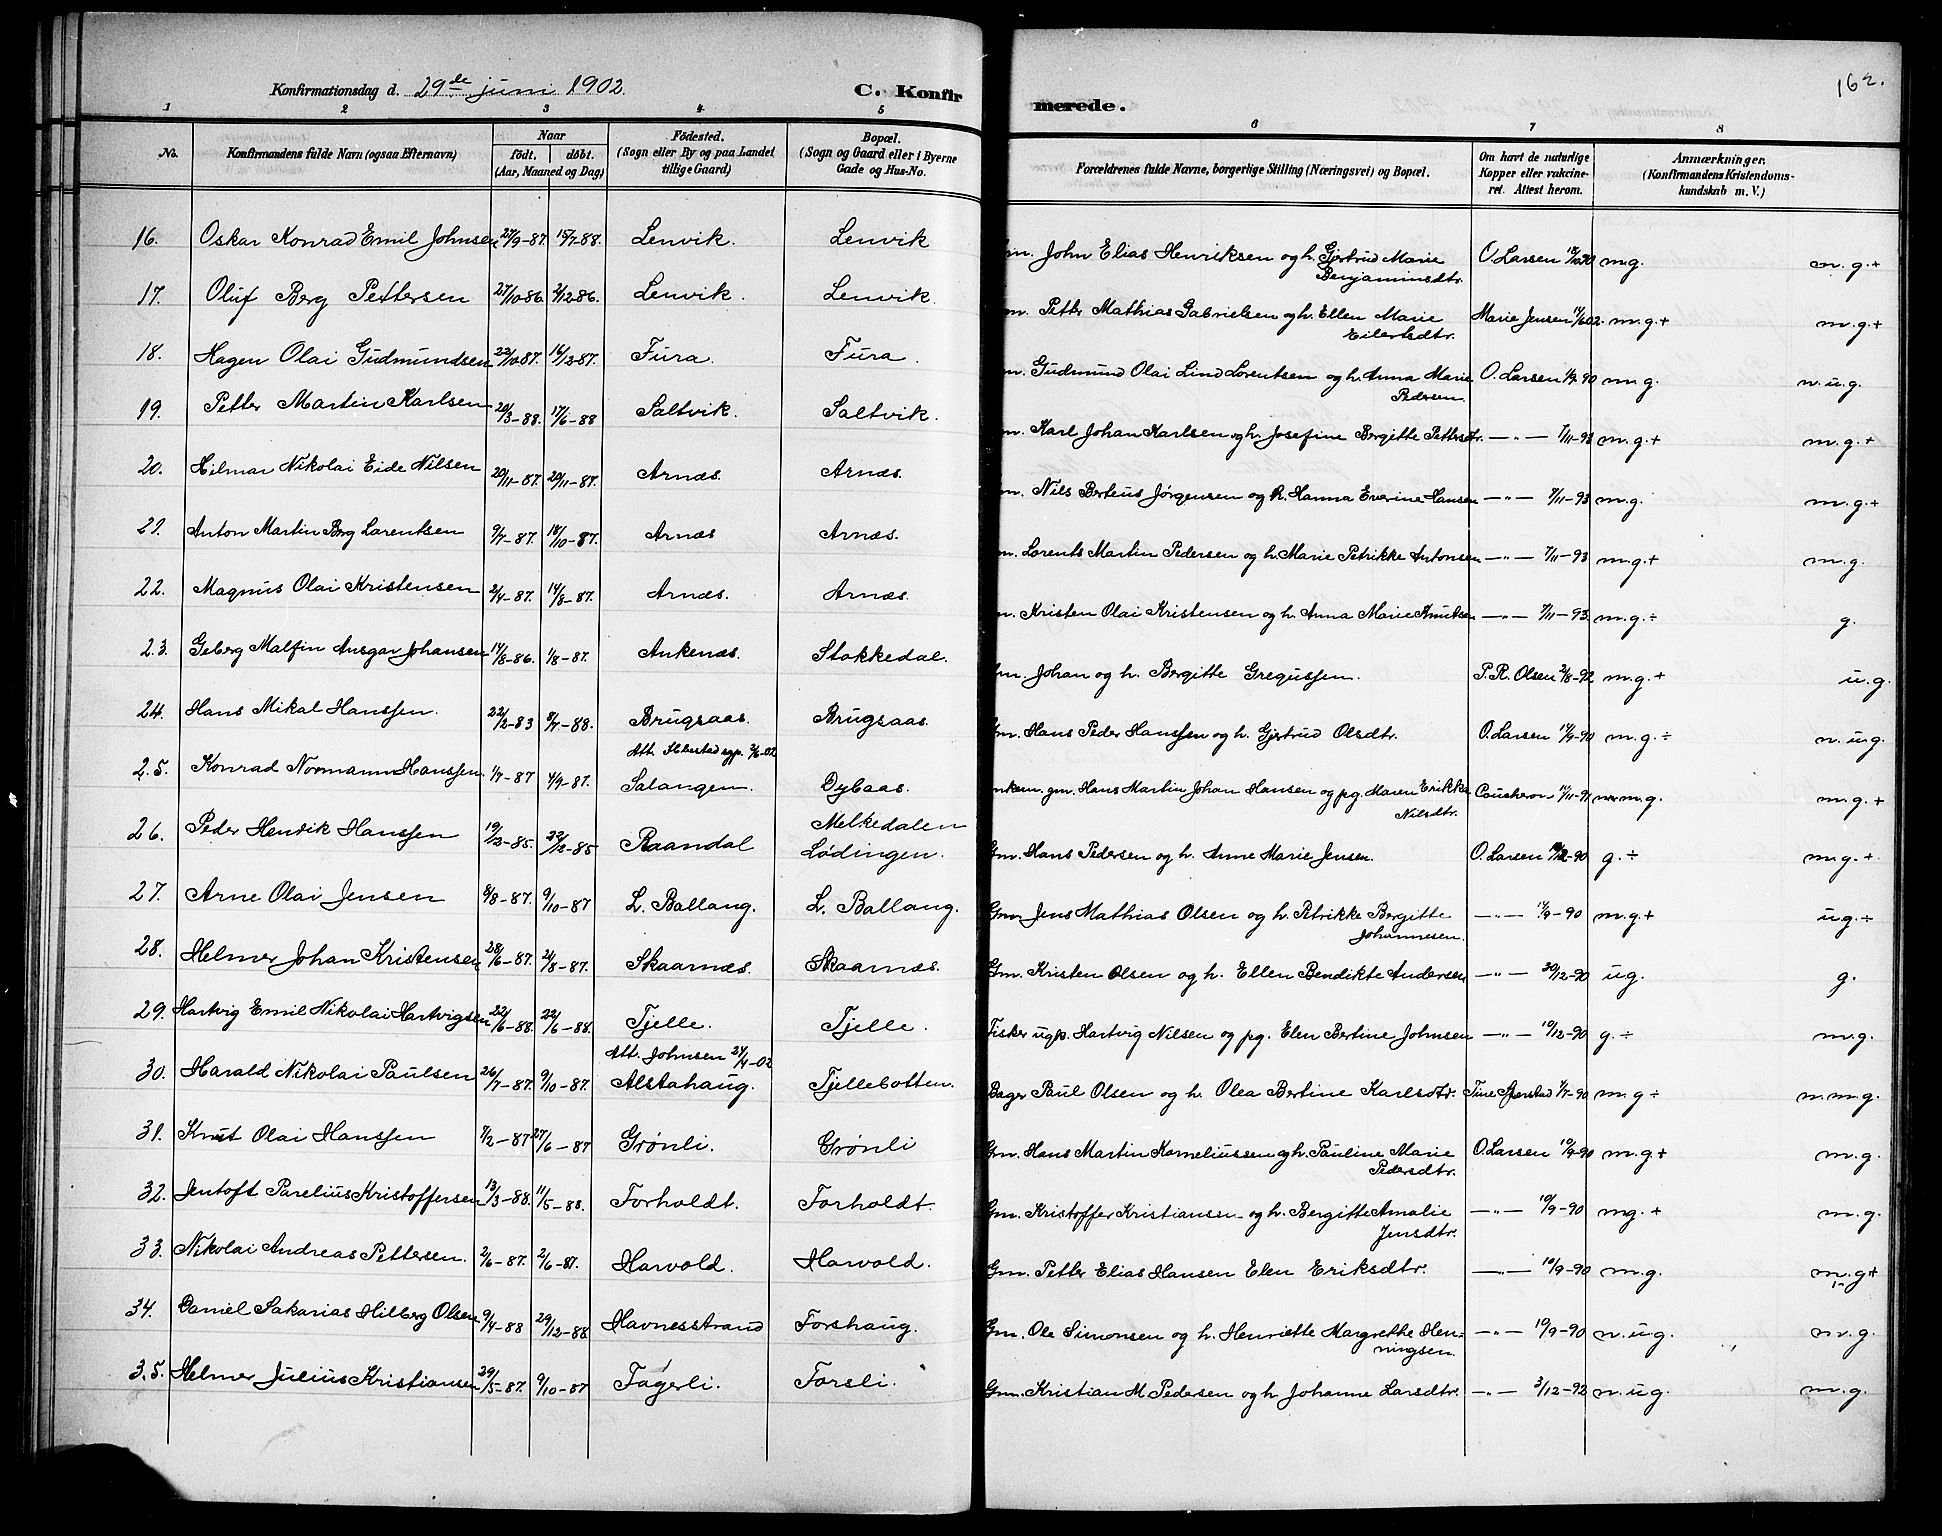 Konfirmationsdag d. 29de juni 1902. C. Konfirmerede. 162.
1 2 3 4 5 6 7 8
No. Konfirmandens fulde Navn (ogsaa Efternavn) Naar født. døbt. (Aar, Maaned og Dag) Fødested. (Sogn eller By og paa Landet tillige Gaard) Bopæl. (Sogn og Gaard eller i Byerne Gade og Hus-No. Forældrenes fulde Navne, borgerlige Stilling (Næringsvei) og Bopæl. Om havt de naturlige Kopper eller vakcineret. Attest herom. Anmærkninger. (Konfirmandens Kristendomskundskab m. V.)
16. Oskar Konrad Emil Johnsen 27/9-87. 15/7-88. Lenvik. Lenvik Gm. John Elias Henriksen og h. Gjertrud Marie Benjaminsdtr. O. Larsen m.g. m.g.+
17. Oluf Berg Pettersen 27/10-86. 2/12-86. Lenvik. Lenvik. Gm. Petter Mathias Gabrielsen og h. Ellen Marie Eilertsdtr. Marie Jensen 14/6 02. m.g.+ m.g.+
18. Hagen Olai Gudmundsen 22/10-87. 16/12-87. Fura. Fura. Gm. Gudmund Olai Lind Lorentsen og h. Anna Marie Pedersen. O. Larsen 1/9-90 m.g. n.u.g.
19. Petter Martin Karlsen 20/3-88. 17/6-88 Saltvik. Saltvik. Gm. Karl Johan Karlsen og h. Josefine Bergitte Pettersdtr. —"— 7/11-93 m.g.+ m.g.+
20. Hilmar Nikolai Eide Nilsen 20/11-87. 20/11-87. Arnæs. Arnæs. Gm. Nils Berteus Jørgensen og h. Hanna Everine Hansen —"— 7/11-93 m.g. m.g.+
21. Anton Martin Berg Lorentsen 9/7-87. 18/10-87. Arnæs Arnæs. Gm. Lorents Martin Pedersen og h. Marie Petrikke Antonsen —"— 7/11-93 m.g.+ m.g.
22. Magnus Olai Kristensen 2/4-87. 14/8-87. Arnæs. Arnæs. Gm. Kristen Olai Kristensen og h. Anna Marie Knutsen —"— 7/11-93. m.g.÷ g.
23. Geberg Malfin Ansgar Johansen 14/8-86. 1/8-87. Ankenæs. Stokkedal. Gm. Johan og h. Bergitte Gregussen. P.R. Olsen 2/8-92 m.g.+ u.g.
24. Hans Mikal Hanssen. 22/2-83 8/7-88. Brugsaas. Brugsaas. Gm. Hans Peder Hanssen og h. Gjertrud Olsdtr. O. Larsen 14/9-90 m.g.÷ n.u.g.
Att. Ibbestad sgp. 2/6-02
25. Konrad Normann Hanssen. 1/7-87 4/9-87. Salangen. Dybaas. Enkem. gm. Hans Martin Johan Hansen og pg. Maren Erikka Nilsdtr. m.g. m.g.+
26. Peder Henrik Hanssen 19/12-85. 22/12-85 Raandal Melkedalen Lødingen. Gm. Hans Pedersen og h. Anne Marie Jensen. O. Larsen g.÷ m.g.+
27. Arne Olai Jensen 8/8-87. 9/10-87 L. Ballang. L. Ballang. Gm. Jens Mathias Olsen og h. Petrikke Bergitte Johannesen. —"— 11/9-90 m.g+ u.g.÷
28. Helmer Johan Kristensen 28/6-87. 21/8-87. Skaarnæs. Skaarnæs. Gm. Kristen Olsen og h. Ellen Bendikte Andersen —"— 30/12-90 u.g. g.
29. Hartvig Emil Nikolai Hartvigsen 22/6-88. 22/6-88. Tjelle. Tjelle. Fisker ugp. Hartvig Nilsen og pg. Elen Bertine Johnsen —"— 10/12-90 g.÷ m.g.
Att. Johnsen 24/4-02
30. Harald Nikolai Paulsen 26/7-87. 9/10-87. Alstahaug. Tjellebotten. Bager Paul Olsen og h. Olea Bertine Karlsdtr. Tine 7/7-90 m.g÷ n.m.g.
31. Knut Olai Hanssen 7/2-87 27/6-87 Grønli. Grønli Gm. Hans Martin Korneliussen og h. Pauline Marie Pedersdtr. O. Larsen 10/9-90 m.g+ m.g.
32. Jentoft Parelius Kristoffersen 13/3-88. 11/5-88. Forholdt. Forholdt. Gm. Kristoffer Kristiansen og h. Bergitte Amalie Jensdtr. —"— 10/9-90 mg.+ m.g.
33. Nikolai Andreas Pettersen. 2/6-87. 2/6-87. Harvold. Harvold. Gm. Petter Elias Hansen Elen Eriksdtr. —"— 10/9-90 m.g. m.g+
34. Daniel Sakarias Hilberg Olsen 9/4-88 29/12-88 Havnesstrand Forshaug. Gm. Ole Simonsen og h. Henriette Margrethe Henningsen. —"— 10/9-90 n.u.g. m.g.
35. Helmer Julius Kristiansen 29/5-87. 9/10-87 Fagerli. Forsli. Gm. Kristian M Pedersen og h Johanne Larsdtr. —"— 3/12-92 n.u.g. m.g.